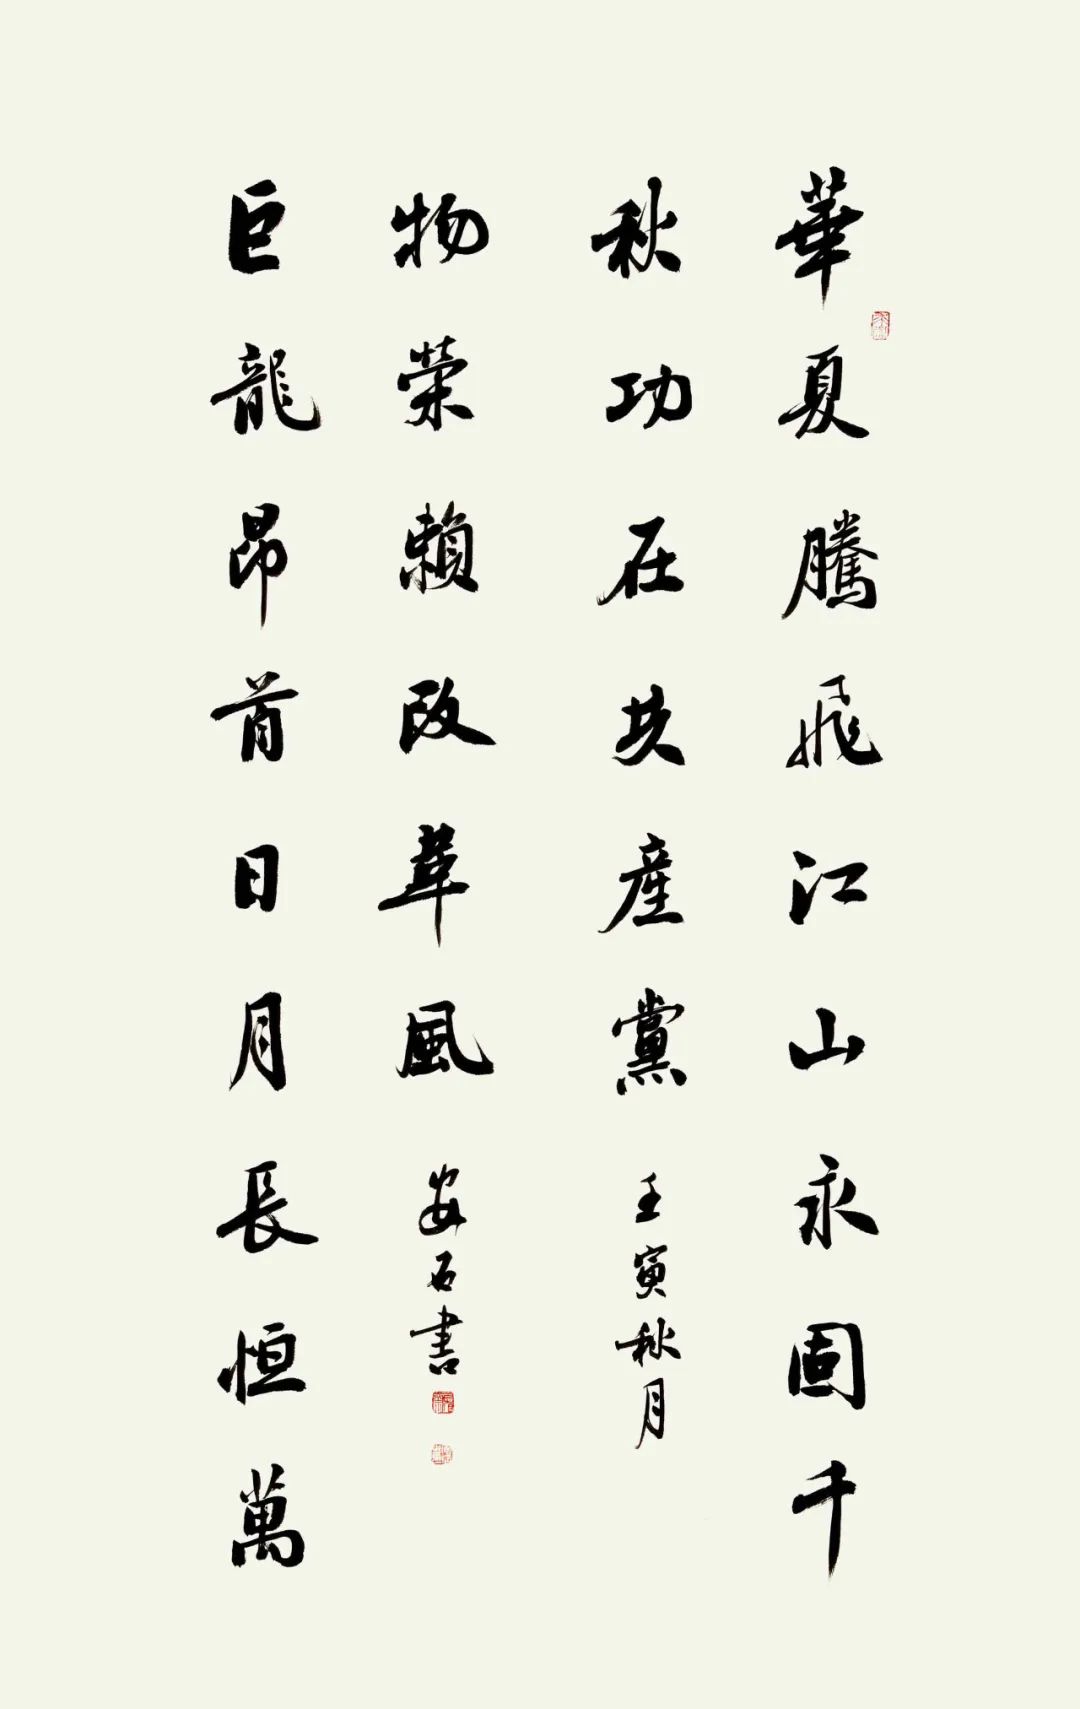 華夏騰飛江山永固千
秋功在共產黨
壬寅秋月
巨龍昂首日月長恒萬
物榮賴改革風
安石書